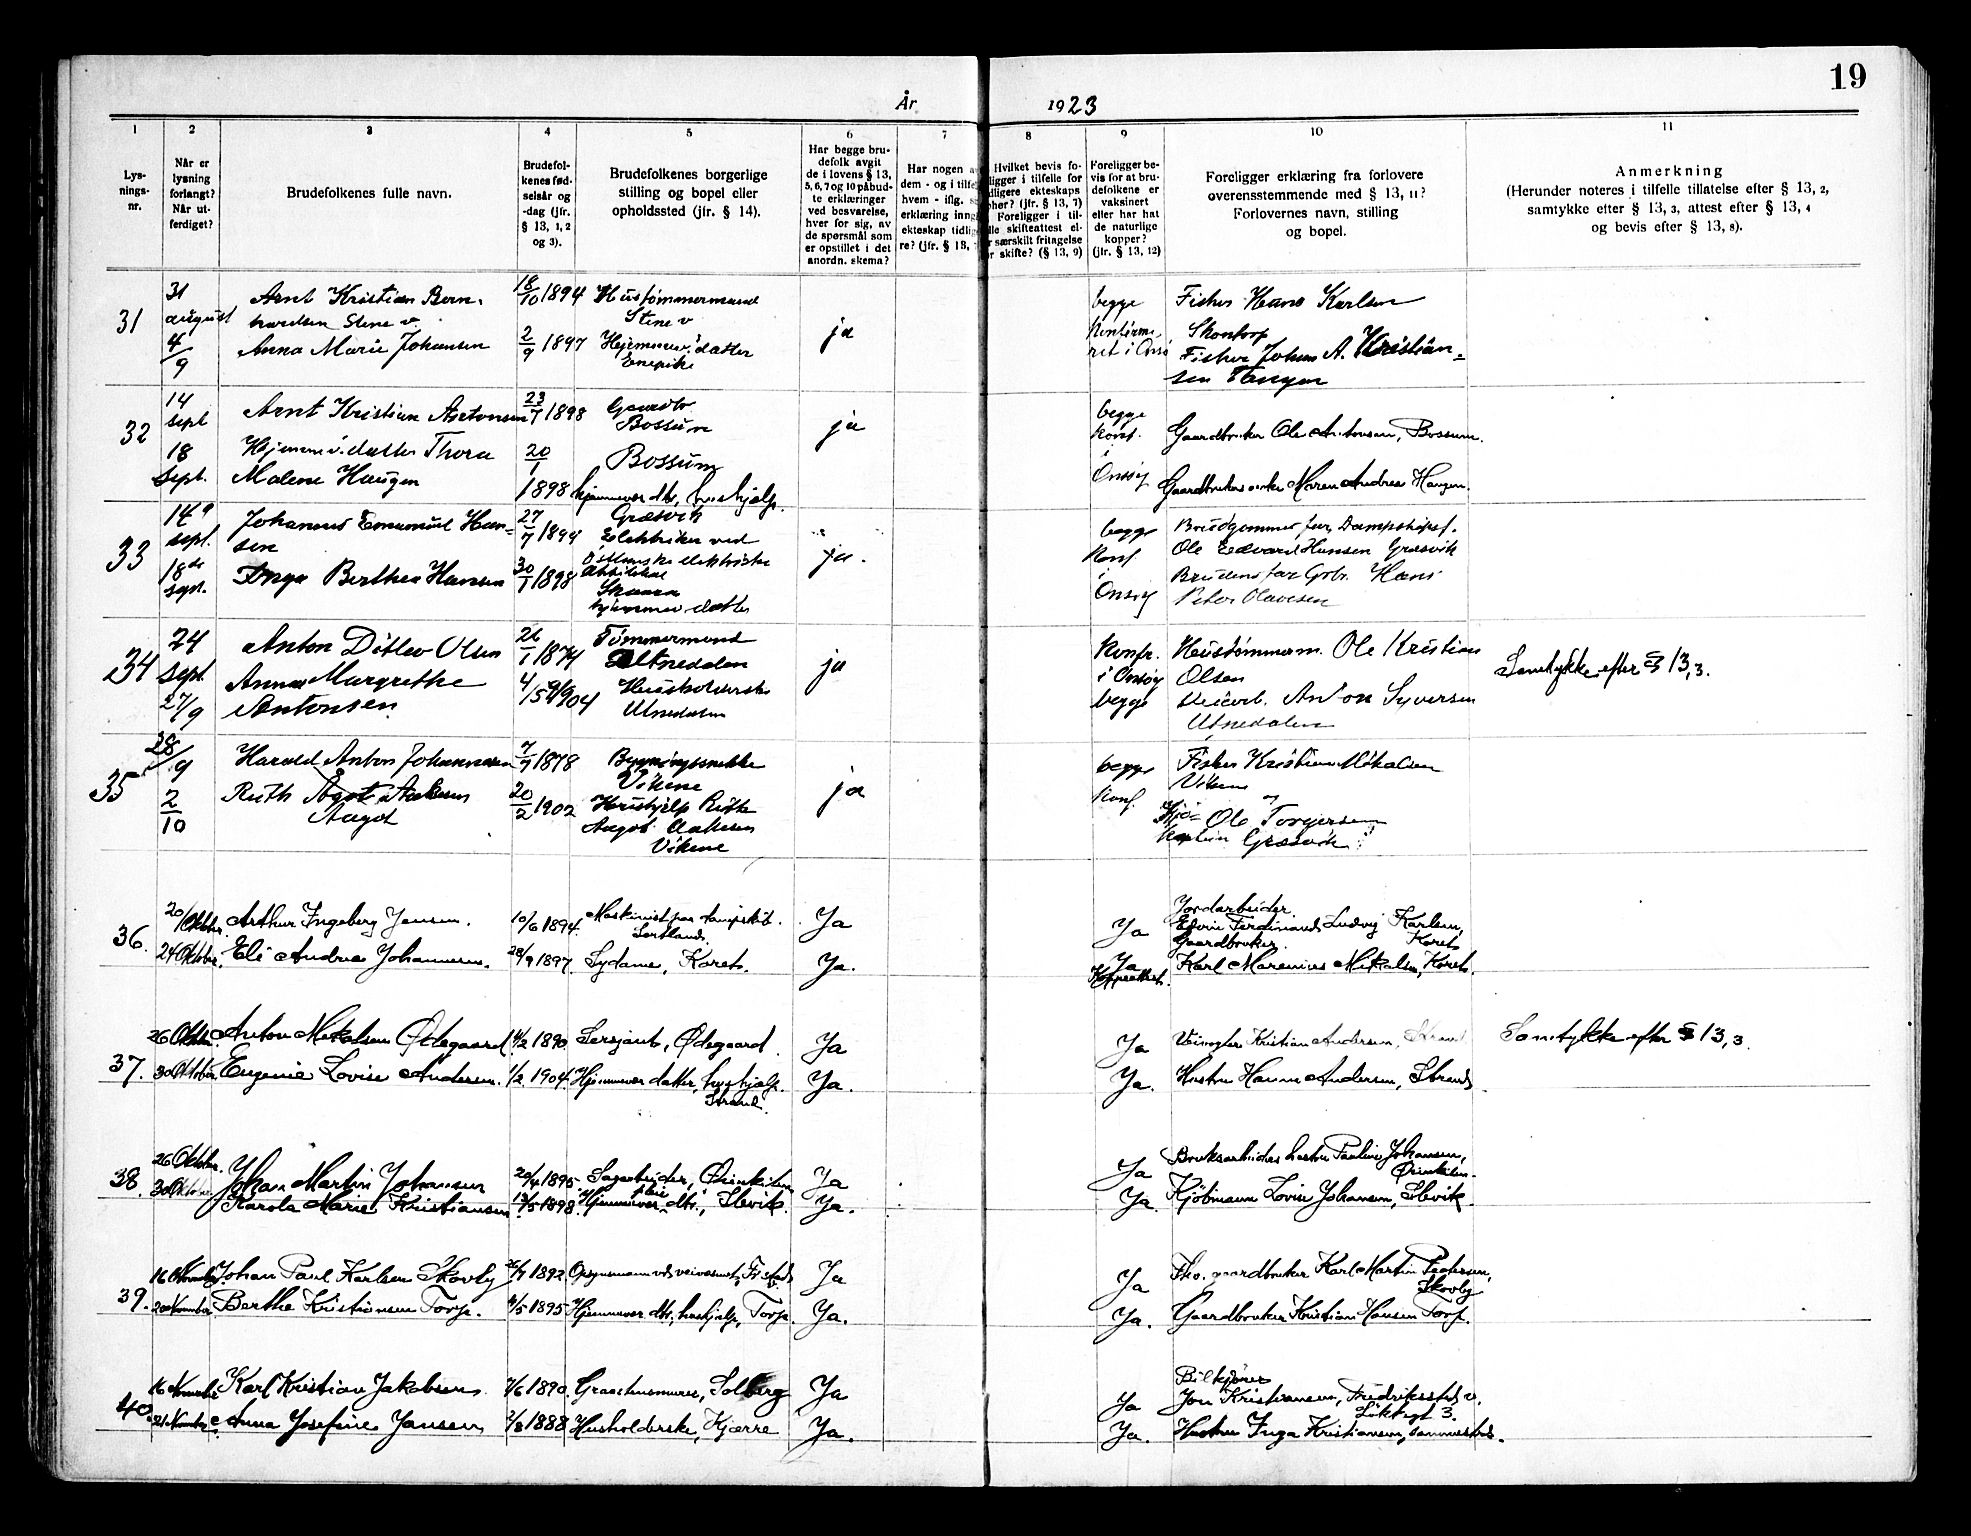 19
År 1923
1 2 3 4 5 6 7 8 9 10 11
Lys-
nings-
nr.
Når er
lysning
forlangt?
Når ut-
ferdiget?
Brudefolkenes fulle navn.
Brudefol-
kenes fød-
selsår og
-dag (jfr.
§ 13, 1, 2
og 3).
Brudefolkenes borgerlige
stilling og bopel eller
opholdssted (jfr. § 14).
Har begge bru-
defolk avgit
de i lovens § 13,
5, 6, 7 og 10 påbud-
te erklæringer
ved besvarelse,
hver for sig, av
de spørsmål som
er opstillet i det
anordn. skema?
Har nogen a
dem - og i tilfe
hvem - iflg.
erklæring inng
ekteskap tidlig
re? (jfr. § 13,
Hvilket bevis fo-
ligger i tilfelle for
dligere ekteskaps
phør? (jfr. § 13, 7)
Foreligger i til-
lle skifteattest el-
r særskilt fritagelse
r skifte? (§ 13, 9)
Foreligger be-
vis for at bru-
defolkene er
vaksinert
eller har hat
de naturlige
kopper?
(jfr. § 13, 12)
Foreligger erklæring fra forlovere
overensstemmende med § 13, 11?
Forlovernes navn, stilling
og bopel.
Anmerkning
(Herunder noteres i tilfelle tillatelse efter § 13, 2,
samtykke efter § 13, 3, attest efter § 13, 4
og bevis efter § 13, 8).
31
31
august
4/9
Arnt Kristian Bern-
hardsen Stene v.
Anna Marie Johansen
18/10 1894
2/9 1897
Hustømmermand
Stene v
Hjemmev. datter
ja
begge
ret i Onsø
Fisker Hans Karlsen
Fisker Johan A. Kristian-
sen Tangen
32
14
sept
18
sept.
Arnt Kristian Antonsen
Hjemmev. datter Thora
Malene Haugen
23/7 1898
20/1
1898
Gaardbr
Bossum
Bossum
hjemmev dtr, hushjelp.
ja
begge
konf.
i
Onsøy
Gaardbruker Ole Antonsen, Bossum.
Gaardbrukerenke Maren Andrea Haugen.
33
14
sept.
18de
sept.
Johannes Emanuel Han-
sen
Inga Berthea Hansen
27/7 1894
30/1 1898
Græsvik
Elektriker ved
elektriske
hjemmev. datter
ja.
begge
Konf
i
Onsøy
Brudgommens far, Dampskipsf.
Ole Edvard Hansen Græsvik
Brudens far Grbr. Hans
Peter Olavesen
34
24
sept
27/9
Anton Ditlev Olsen
Anna Margrethe
Antonsen
26/1 1874
4/5 1904
Tømmermand
Utnedalen
Husholderske
Utnedalen
ja
Konfr.
i Onsøy
begge
Hustømmerm. Ole Kristian
Olsen
Anton Syversen
Utnedalen
Samtykke efter § 13,3.
35
28/9
2/10
Harald Anton Johannesen
Ruth
Aagot
7/7 1878
20/2 1902
Bygningssnekker
Vikene
Hushjelp Ruth
Aagot
Vikene
ja
begge
Konf.
Fisker Kristian Mikalsen
Vikene
og
Ole Torgersen
Græsvik
36.
20/Oktbr.
24 Oktober.
Arthur Ingeberg Jensen.
Eli Andrea Johannesen.
10/6 1894.
28/9 1897.
Maskinist paa dampskib.
Sortland.
Sydame, Koret.
Ja
Ja.
Ja
Ja
Jordarbeider.
Edvin Ferdinand Ludvig Karlsen,
Koret
Gaardbruker.
Karl Marenius Mikalsen, Koret.
37.
26 Oktbr.
30 Oktober
Anton Mikalsen Ødegaard
Eugenie Lovise Andersen.
1890.
1/2 1904.
Sersjant, Ødegaard.
Hjemmev datter, hushjælp.
Strand.
Ja
Ja.
Ja
Ja.
Kristian Andersen, Strand
Hustru Hanna Andersen, Strand.
Samtykke efter § 13,3.
38.
26 Oktober.
30 Oktober
Johan Martin Johansen
Karola Marie Kristiansen
20/4 1895
13/5 1898.
Sagarbeider, Ørinkilen
Hjemmev. dtr., Slevik.
Ja
Ja.
Ja
Ja.
Bruksarbeiders hustru Pauline Johansen,
Ørinkilen.
Kjøbmann Lovise Johansen, Slevik.
39.
16 November
20 November
Johan Paul Karlsen Skovly
Berthe Kristiansen Torp.
1892.
1895
Opsynsmann
Hjemmev. dtr., hushjelp, Torp.
Ja
Ja.
Ja
Ja.
Fho. gaardbruker Karl Martin Pedersen,
Skovly
Gaardbruker Kristian Hansen Torp.
40.
16 November
21 November
Karl Kristian Jakobsen
Anna Josefine Jansen
7/6 1890.
7/8 1888
Graastensmurer, Solberg
Husholderske, Kjærre
Ja
Ja.
Ja
Ja.
Bilkjører
Jon Kristiansen, Fredrikstad v.
3.
Hustru Inga Kristiansen, sammesteds.